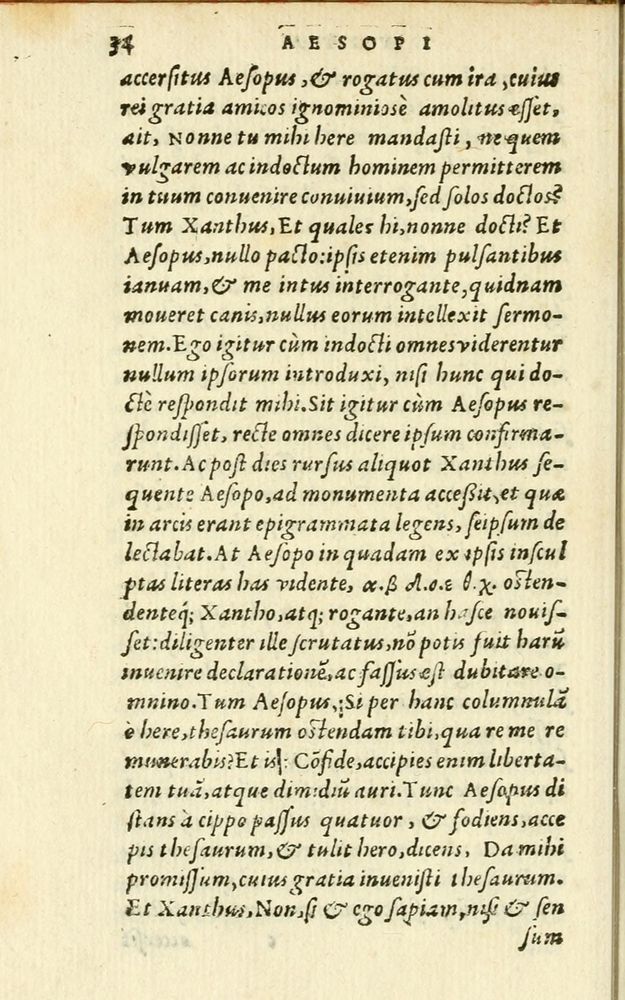 34 AESOPI
accersitus Aesopus, & rogatus cum ira, cuius
rei gratia amicos ignominiosè amolitus esset,
ait, Nonne tu mihi here mandasti, ne quem
vulgarem ac indoctum hominem permitterem
in tuum conuenire conuiuium, sed solos doctos?
Tum Xanthus, Et quales hi, nonne docti? Et
Aesopus, nullo pacto: ipsis etenim pulsantibus
ianuam, & me intus interrogante, quidnam
moueret canis, nullus eorum intellexit sermo-
nem. Ego igitur cùm indocti omnes viderentur
nullum ipsorum introduxi, nisi hunc qui do-
ctè respondit mihi. Sit igitur cùm Aesopus re-
spondisset, recte omnes dicere ipsum confirma-
runt. Ac post dies rursus aliquot Xanthus se-
quente Aesopo, ad monumenta acceßit, et quæ
in arcis erant epigrammata legens, seipsum de
lectabat. At Aesopo in quadam ex ipsis inscul
ptas literas has vidente, α.β δ.ο.ε θ.χ. osten-
denteq́; Xantho, atq; rogante, an hasce nouis-
set: diligenter ille scrutatus, nõ potis fuit harũ
inuenire declarationẽ, ac fassus est dubitare o-
mnino. Tum Aesopus, Si per hanc columnulã
è here, thesaurum ostendam tibi, qua re me re
munerabis? Et is: Cõfide, accipies enim liberta-
tem tuã, atque dimidiũ auri. Tunc Aesopus di
stans à cippo passus quatuor, & fodiens, acce
pis thesaurum, & tulit hero, dicens, Da mihi
promissum, cuius gratia inuenisti thesaurum.
Et Xanthus, Non, si & ego sapiam, nisi & sen
sum